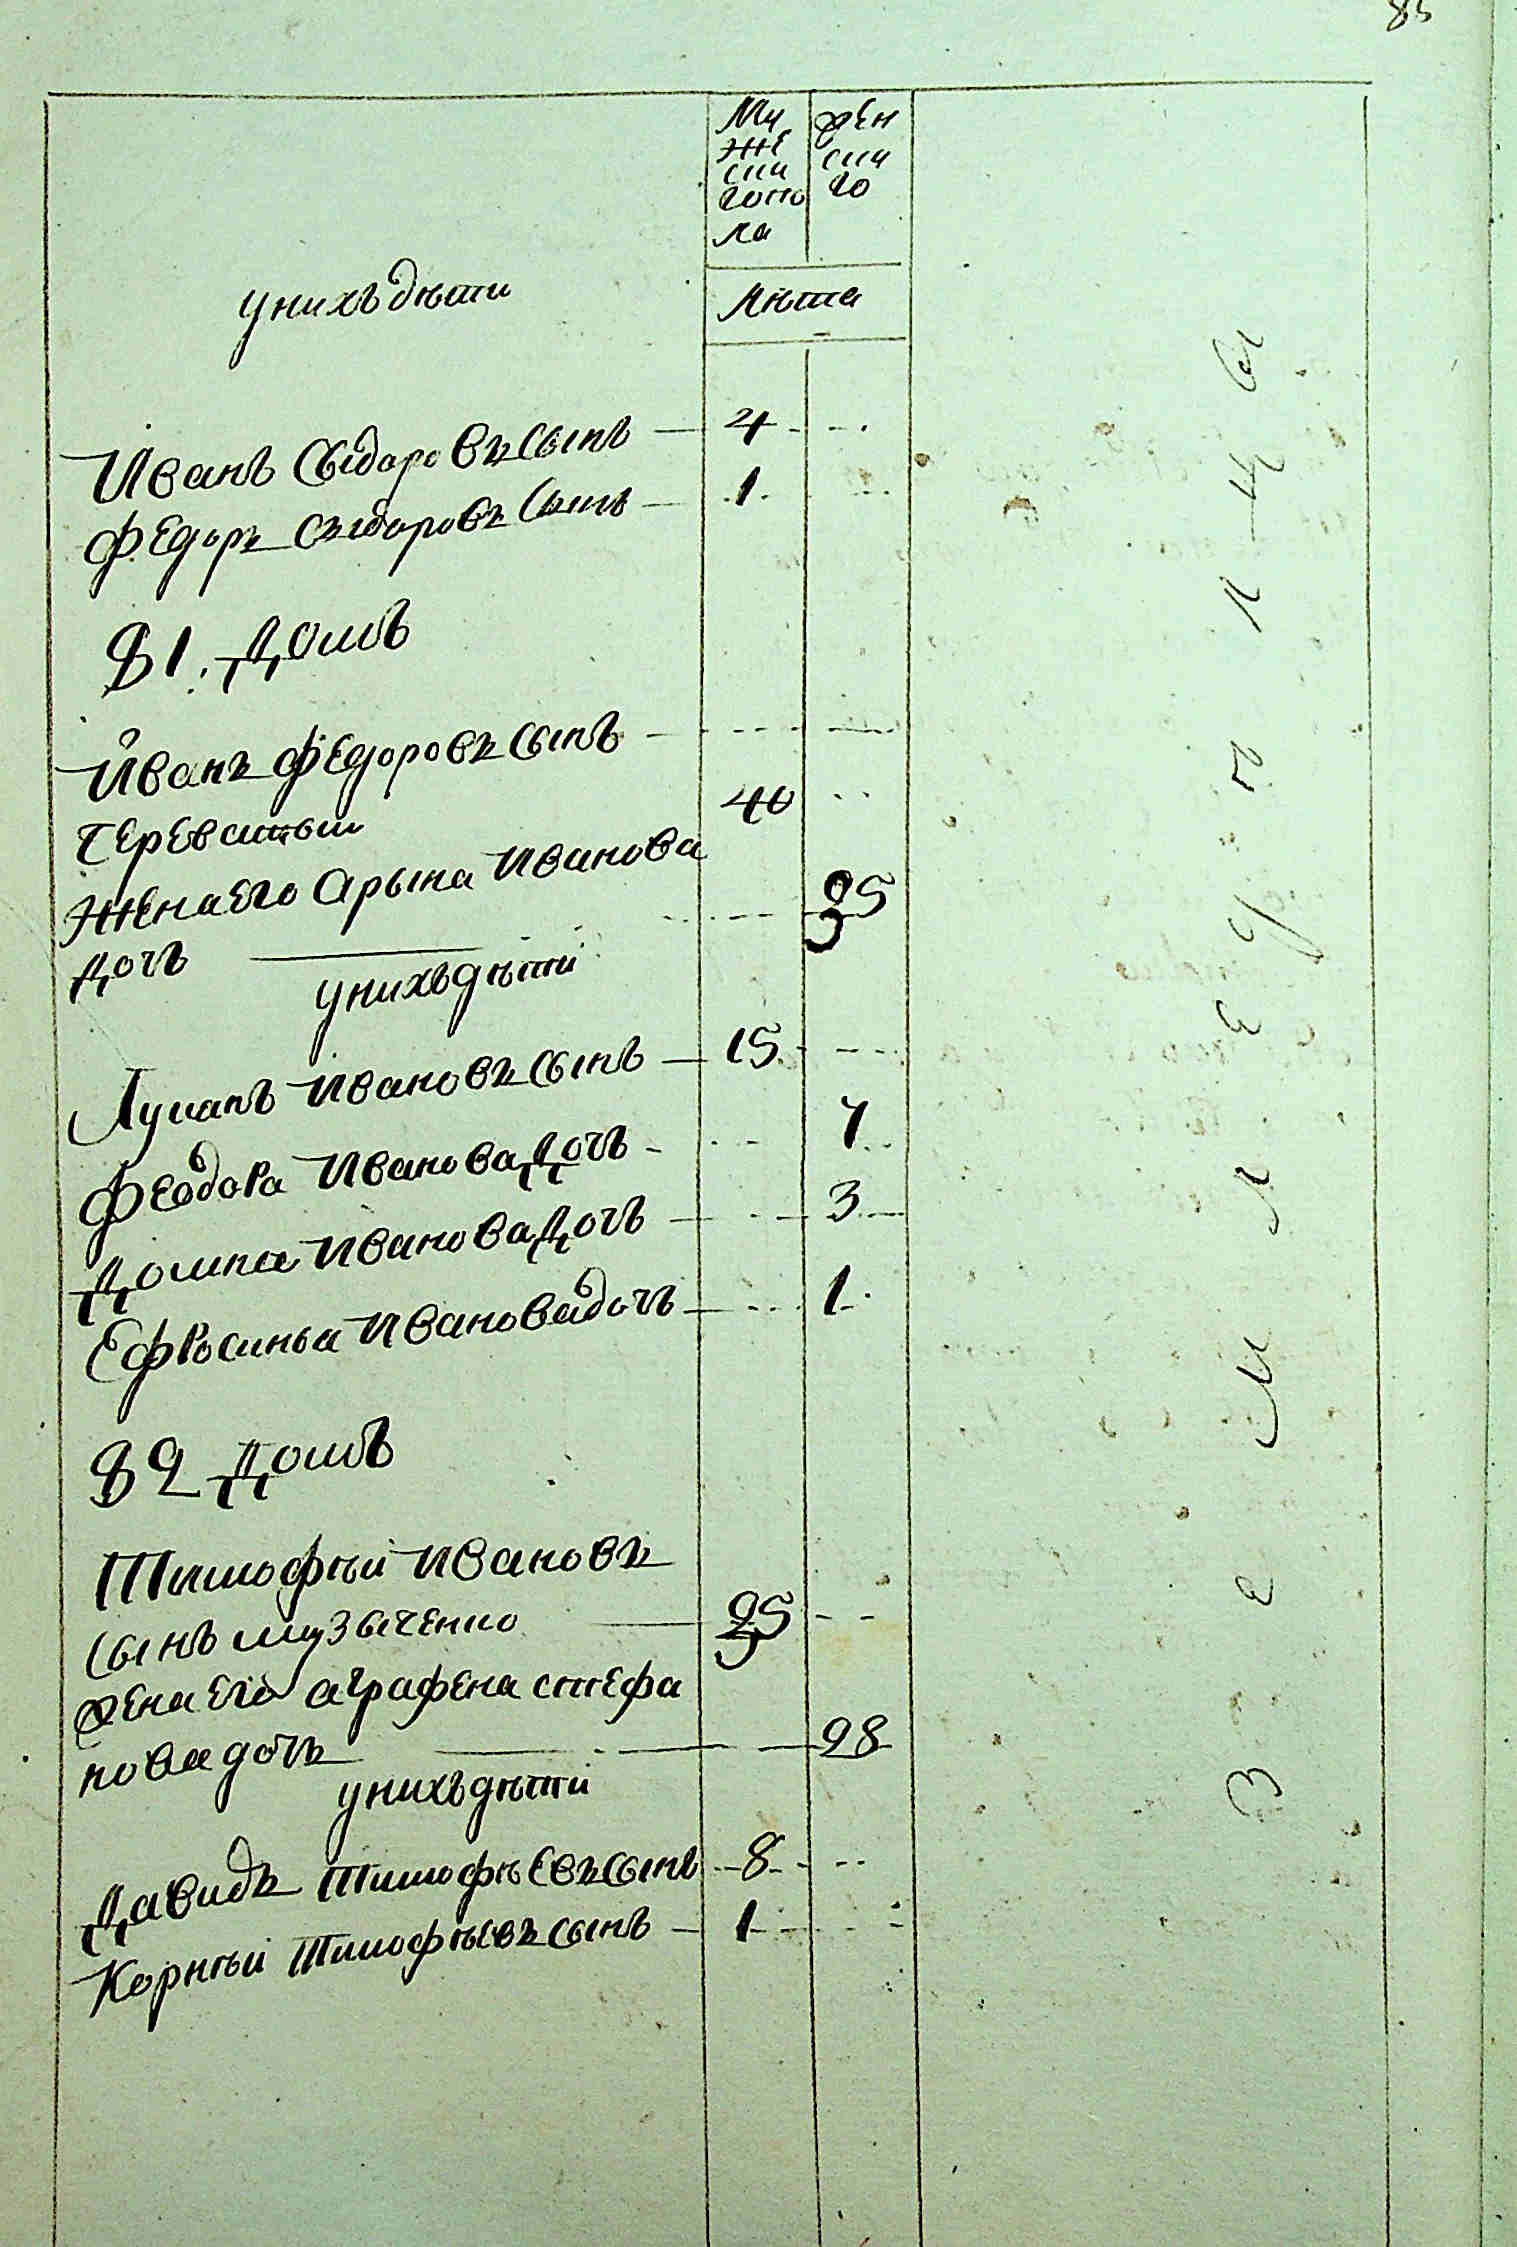 85
Му
же
ска
гопо
ла
жен
ска
го
унихъ дѣти
лѣта
Иванъ Сыдоровъ Сынъ 4
Федоръ Сыдоровъ Сынъ 1
81. Домъ
Иванъ Федоровъ Сынъ
Череватый 40
Жена его Арына Иванова
дочъ 35
унихъ дѣти
Лукапъ Ивановъ Сынъ 15
Феодора Иванова Дочъ 7
Домна Иванова Дочъ 3
Ефросинья Иванова дочъ 1
82 Домъ
Тимофѣй Ивановъ
Сынъ музыченко 35
жена его аграфена стефа
нова дочъ 28
унихъ дѣти
Давидъ Тимофѣевъ Сынъ 8
Корнѣй Тимофѣевъ Сынъ 1